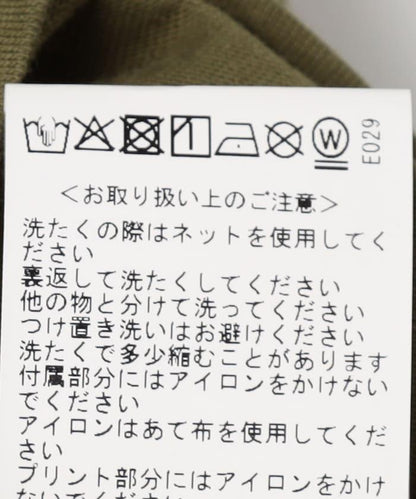 W
E029
<お取り扱い上のご注意>
洗たくの際はネットを使用してく
ださい
裏返して洗たくしてください
他の物と分けて洗ってください
つけ置き洗いはお避けください
洗たくで多少縮むことがあります
付属部分にはアイロンをかけない
でください
アイロンはあて布を使用してくだ
さい
プリント部分にはアイロンをかけ
ないでください